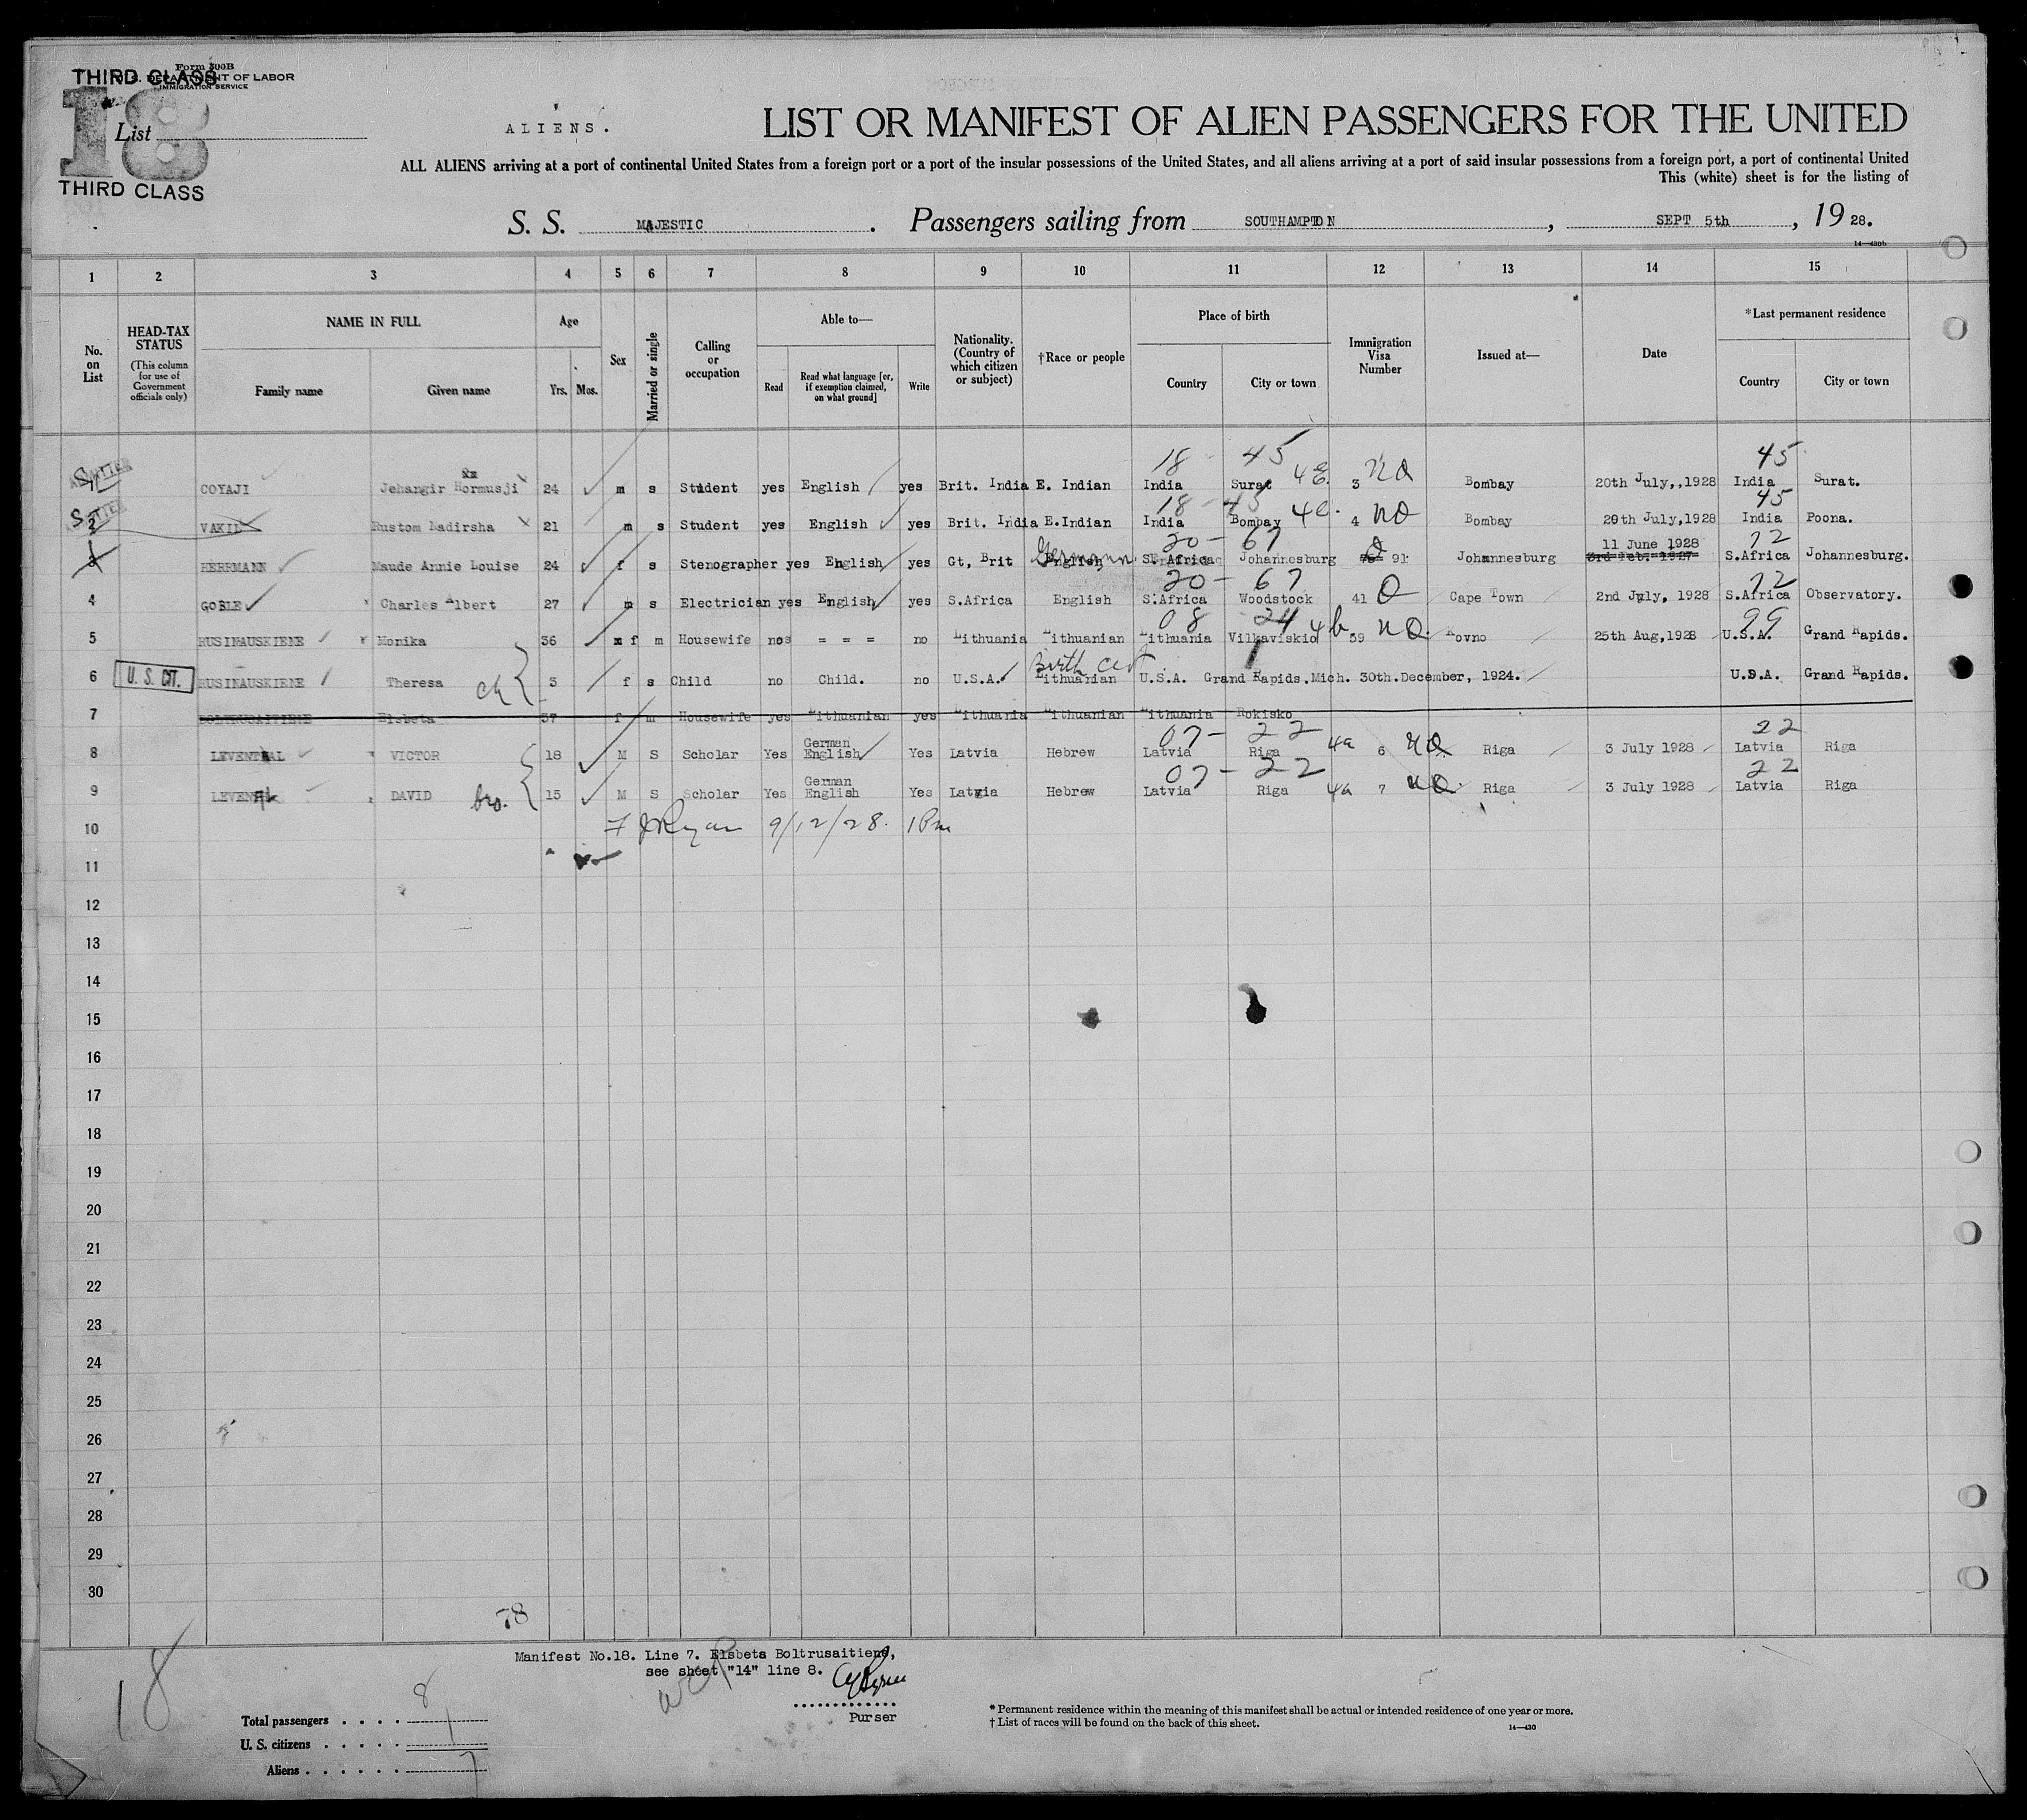 THIRD CLASS
Form 500B
U. S. DEPARTMENT OF LABOR
IMMIGRATION SERVICE
18
List
THIRD CLASS
ALIENS.
LIST OR MANIFEST OF ALIEN PASSENGERS FOR THE UNITED
ALL ALIENS arriving at a port of continental United States from a foreign port or a port of the insular possessions of the United States, and all aliens arriving at a port of said insular possessions from a foreign port, a port of continental United
This (white) sheet is for the listing of
S. S. MAJESTIC. Passengers sailing from SOUTHAMPTON, SEPT 5th, 19 28.
14—430b
1 2 3 4 5 6 7 8 9 10 11 12 13 14 15
No. on List
HEAD-TAX STATUS (This column for use of Government officials only)
NAME IN FULL Family name Given name
Age Yrs. Mos.
Sex
Married or single
Calling or occupation
Able to— Read Read what language [or, if exemption claimed, on what ground] Write
Nationality. (Country of which citizen or subject)
†Race or people
Place of birth Country City or town
Immigration Visa Number
Issued at—
Date
*Last permanent residence Country City or town
18 45 45
COYAJI Jehangir Hormusji 24 m s Student yes English yes Brit. India E. Indian India Surat 3 NQ Bombay 20th July,,1928 India Surat.
18 - 45 45
2 VAKIL Rustom Nadirsha 21 m s Student yes English yes Brit. India E.Indian India Bombay 4 NQ Bombay 20th July,1928 India Poona.
20 - 67 11 June 1928 72
3 HERRMANN Maude Annie Louise 24 f s Stenographer yes English yes Gt, Brit German English S.Africa Johannesburg 91 Johannesburg 3rd Feb. 1927 S.Africa Johannesburg.
20 - 67 72
4 GOBLE Charles Albert 27 m s Electrician yes English yes S.Africa English S.Africa Woodstock 41 Q Cape Town 2nd July, 1928 S.Africa Observatory.
08 24 99
5 RUSINAUSKIENE Monika 36 f m Housewife no = = = no Lithuania Lithuanian Lithuania Vilkaviskio 4b 59 NQ Kovno 25th Aug,1928 U.S.A. Grand Rapids.
Birth Cert
6 U. S. CIT. RUSINAUSKIENE Theresa ch 3 f s Child no Child. no U.S.A. Lithuanian U.S.A. Grand Rapids.Mich. 30th.December, 1924. U.S.A. Grand Rapids.
7 BOLTRUSAITIENE Elsbeta 37 f m Housewife yes Lithuanian yes Lithuania Lithuanian Lithuania Rokisko
07 - 22 22
8 LEVENTAL VICTOR 18 M S Scholar Yes German English Yes Latvia Hebrew Latvia Riga 4a 6 NQ Riga 3 July 1928 Latvia Riga
07 - 22 22
9 DAVID bro. 15 M S Scholar Yes German English Yes Latvia Hebrew Latvia Riga 4a 7 NQ Riga 3 July 1928 Latvia Riga
10 F J Ryan 9/12/28. 1 Pm
11
12
13
14
15
16
17
18
19
20
21
22
23
24
25
26
27
28
29
30
78
Manifest No.18. Line 7. Elsbeta Boltrusaitiene,
see sheet "14" line 8.
Purser
18
Total passengers 8
U. S. citizens 1
Aliens 7
* Permanent residence within the meaning of this manifest shall be actual or intended residence of one year or more.
† List of races will be found on the back of this sheet.
14—430